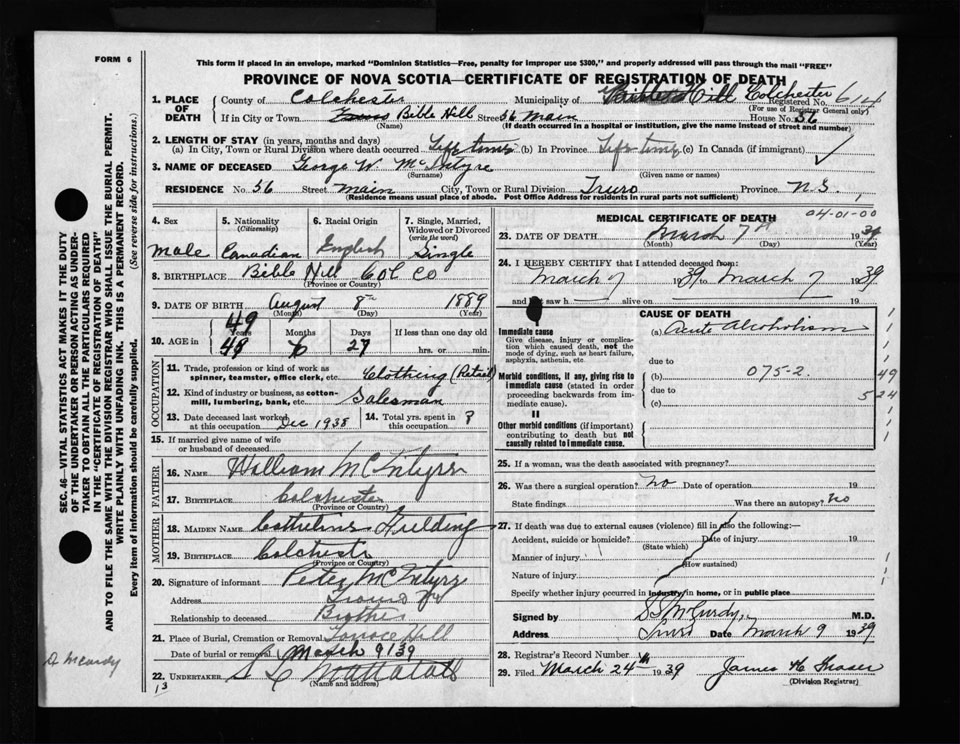 FORM 6
This form if placed in an envelope, marked "Dominion Statistics—Free, penalty for improper use $300," and properly addressed will pass through the mail "FREE"
PROVINCE OF NOVA SCOTIA—CERTIFICATE OF REGISTRATION OF DEATH
1. PLACE OF DEATH
County of Colchester Municipality of Bible Hill Colchester
Registered No. 614
(For use of Registrar General only)
If in City or Town Bible Hill Street 56 Main House No. 56
(Name) (If death occurred in a hospital or institution, give the name instead of street and number)
2. LENGTH OF STAY (in years, months and days)
(a) In City, Town or Rural Division where death occurred Life time (b) In Province Life time (c) In Canada (if immigrant)
3. NAME OF DECEASED George W. McIntyre
(Surname) (Given name or names)
RESIDENCE No. 56 Street Main City, Town or Rural Division Truro Province N.S.
(Residence means usual place of abode. Post Office Address for residents in rural parts not sufficient)
4. Sex
Male
5. Nationality
(Citizenship)
Canadian
6. Racial Origin
English
7. Single, Married, Widowed or Divorced
(write the word)
Single
8. BIRTHPLACE Bible Hill Col Co
(Province or Country)
9. DATE OF BIRTH August 8th 1889
(Month) (Day) (Year)
10. AGE in
49
Years Months Days If less than one day old
49 6 27 hrs. or min.
OCCUPATION
11. Trade, profession or kind of work as spinner, teamster, office clerk, etc. Clothing (Retail)
12. Kind of industry or business, as cotton-mill, lumbering, bank, etc. Salesman
13. Date deceased last worked at this occupation Dec 1938
14. Total yrs. spent in this occupation 8
15. If married give name of wife or husband of deceased
FATHER
16. NAME William McIntyre
17. BIRTHPLACE Colchester
(Province or Country)
MOTHER
18. MAIDEN NAME Catherine Fielding
19. BIRTHPLACE Colchester
(Province or Country)
20. Signature of informant Peter McIntyre
Address Truro NS
Relationship to deceased Brother
21. Place of Burial, Cremation or Removal Terrace Hill
Date of burial or removal March 9/39
22. UNDERTAKER
(Name and address)
MEDICAL CERTIFICATE OF DEATH
04-01-00
23. DATE OF DEATH March 7th 1939
(Month) (Day) (Year)
24. I HEREBY CERTIFY that I attended deceased from:
March 7 1939 to March 7 1939
and last saw h alive on 19
CAUSE OF DEATH
Immediate cause
Give disease, injury or complication which caused death, not the mode of dying, such as heart failure, asphyxia, asthenia, etc.
(a) Acute Alcoholism
due to
Morbid conditions, if any, giving rise to immediate cause (stated in order proceeding backwards from immediate cause).
(b) 075-2.
due to
(c)
49
524
II
Other morbid conditions (if important) contributing to death but not causally related to immediate cause.
25. If a woman, was the death associated with pregnancy?
26. Was there a surgical operation? no Date of operation 19
State findings Was there an autopsy? no
27. If death was due to external causes (violence) fill in also the following:—
Accident, suicide or homicide? Date of injury 19
(State which)
Manner of injury
(How sustained)
Nature of injury
Specify whether injury occurred in industry, in home, or in public place
Signed by S.L. McCurdy, M.D.
Address Truro Date March 9 1939
28. Registrar's Record Number
29. Filed March 24th 1939 James H Fraser
(Division Registrar)
SEC. 46—VITAL STATISTICS ACT MAKES IT THE DUTY
OF THE UNDERTAKER OR PERSON ACTING AS UNDER-
TAKER TO OBTAIN ALL THE PARTICULARS REQUIRED
IN THE "CERTIFICATE OF REGISTRATION OF DEATH"
AND TO FILE THE SAME WITH THE DIVISION REGISTRAR WHO SHALL ISSUE THE BURIAL PERMIT.
WRITE PLAINLY WITH UNFADING INK. THIS IS A PERMANENT RECORD.
Every item of information should be carefully supplied. (See reverse side for instructions.)
13